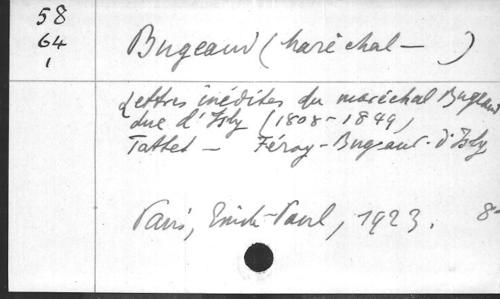 58
64
1
Bugeaud (Maréchal — )
Lettres inédites du maréchal Bugeaud
duc d'Isly (1808-1849)
Tattet — Féray-Bugeaud d'Isly
Paris, Emile-Paul, 1923. 8°